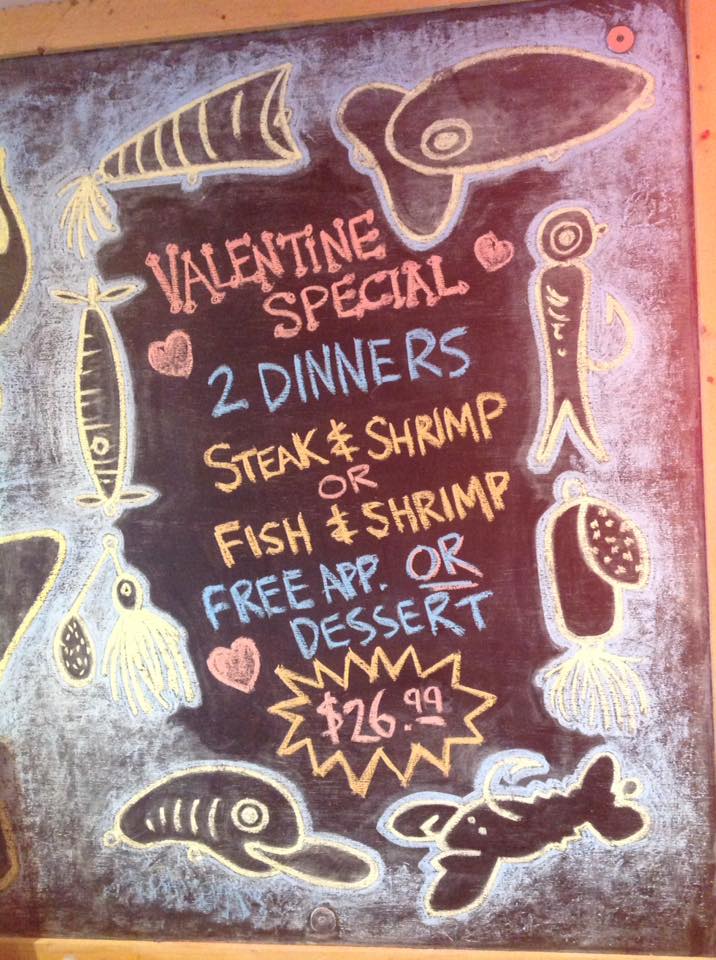 VALENTINE
SPECIAL
2 DINNERS
STEAK & SHRIMP
OR
FISH & SHRIMP
FREE APP. OR
DESSERT
$26.99